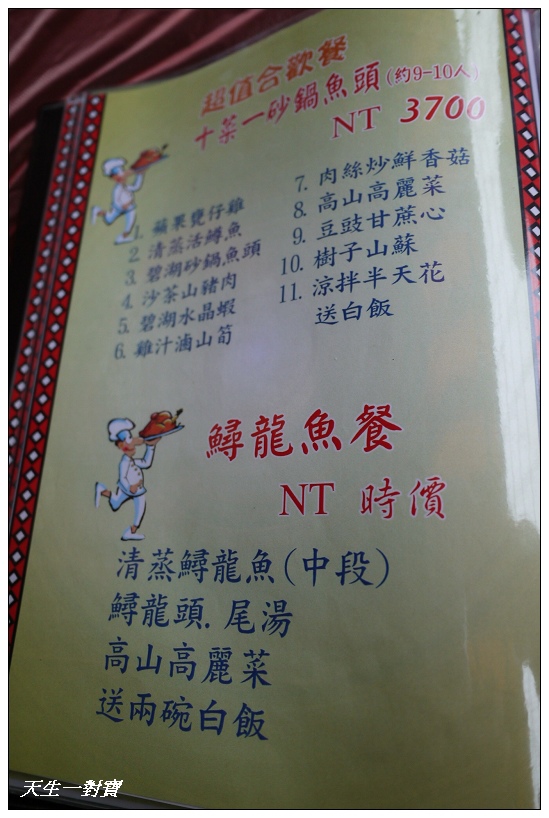 超值合歡餐
十菜一砂鍋魚頭(約9-10人)
NT 3700
1. 蘋果甕仔雞
2. 清蒸活鱒魚
3. 碧湖砂鍋魚頭
4. 沙茶山豬肉
5. 碧湖水晶蝦
6. 雞汁滷山筍
7. 肉絲炒鮮香菇
8. 高山高麗菜
9. 豆豉甘蔗心
10. 樹子山蘇
11. 涼拌半天花
送白飯
鱘龍魚餐
NT 時價
清蒸鱘龍魚(中段)
鱘龍頭.尾湯
高山高麗菜
送兩碗白飯
天生一對寶